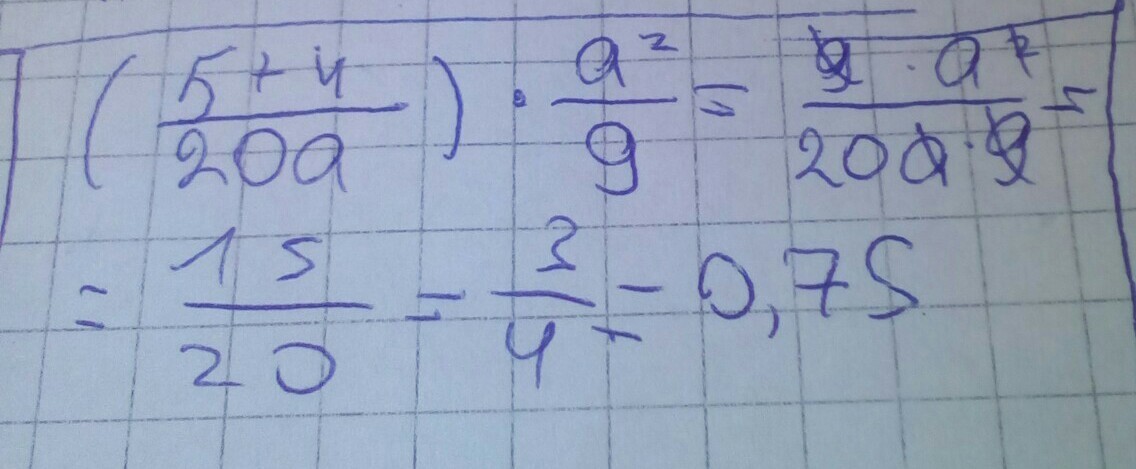 (5+4/20a) · a²/9 = 9 · a²/20a · 9 =
= 15/20 = 3/4 = 0,75